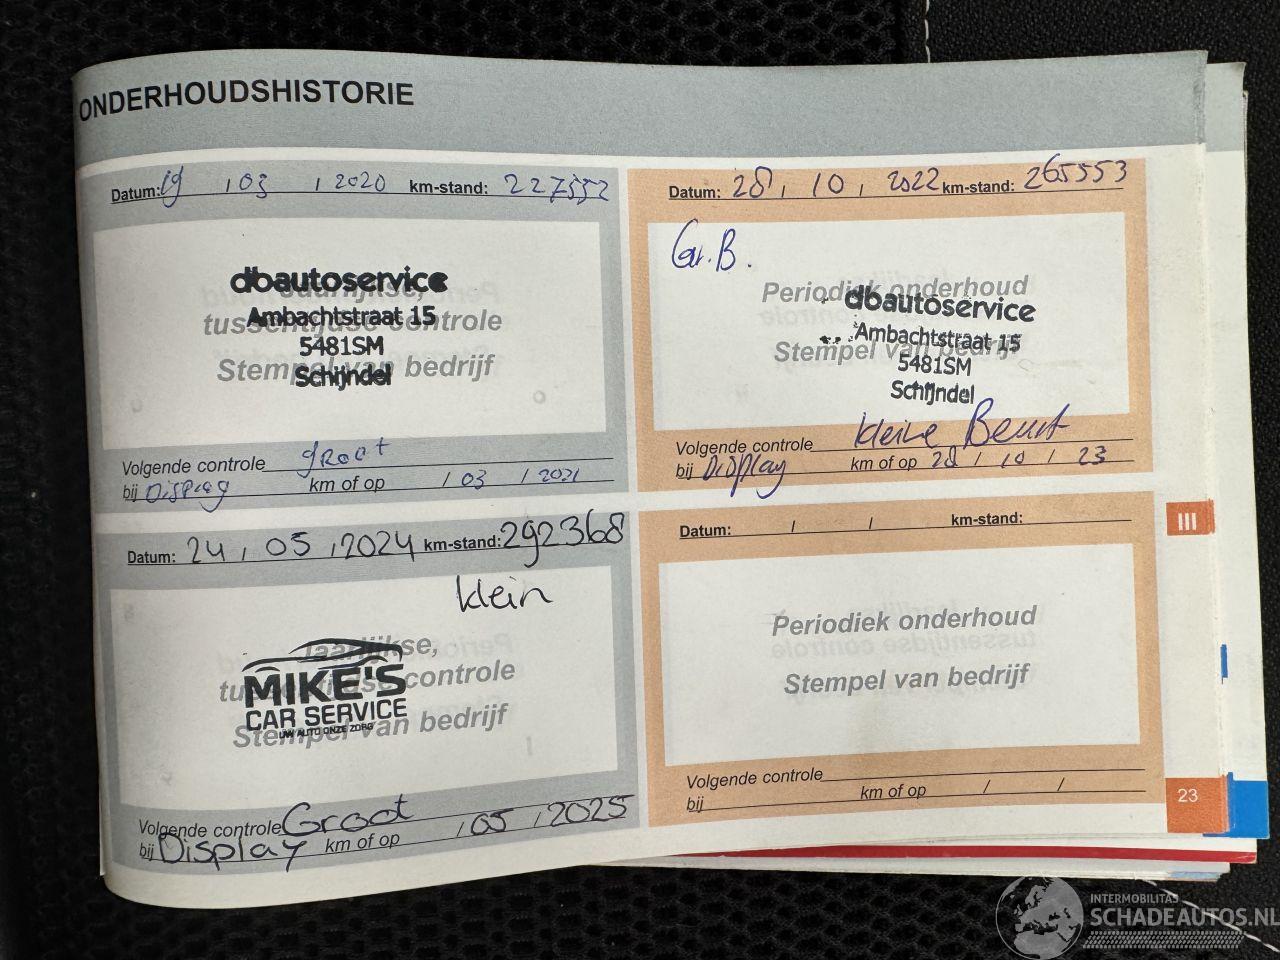 ONDERHOUDSHISTORIE
Datum: 19 / 03 / 2020 km-stand: 227552
dbautoservice
Jaarlijkse,
Ambachtstraat 15
tussentijdse controle
5481SM
Stempel van bedrijf
Schijndel
Volgende controle groot
bij Display km of op / 03 / 2021
Datum: 28 / 10 / 2022 km-stand: 265553
Gr. B.
Periodiek onderhoud
dbautoservice
Ambachtstraat 15
Stempel van bedrijf
5481SM
Schijndel
Volgende controle kleine Beurt
bij Display km of op 28 / 10 / 23
Datum: 24 / 05 / 2024 km-stand: 292368
klein
Jaarlijkse,
tussentijdse controle
MIKE'S
CAR SERVICE
UW AUTO ONZE ZORG
Stempel van bedrijf
Volgende controle Groot
bij Display km of op / 05 / 2025
Datum: / / km-stand:
Periodiek onderhoud
Stempel van bedrijf
Volgende controle
bij km of op / /
III
23
INTERMOBILITAS
SCHADEAUTOS.NL